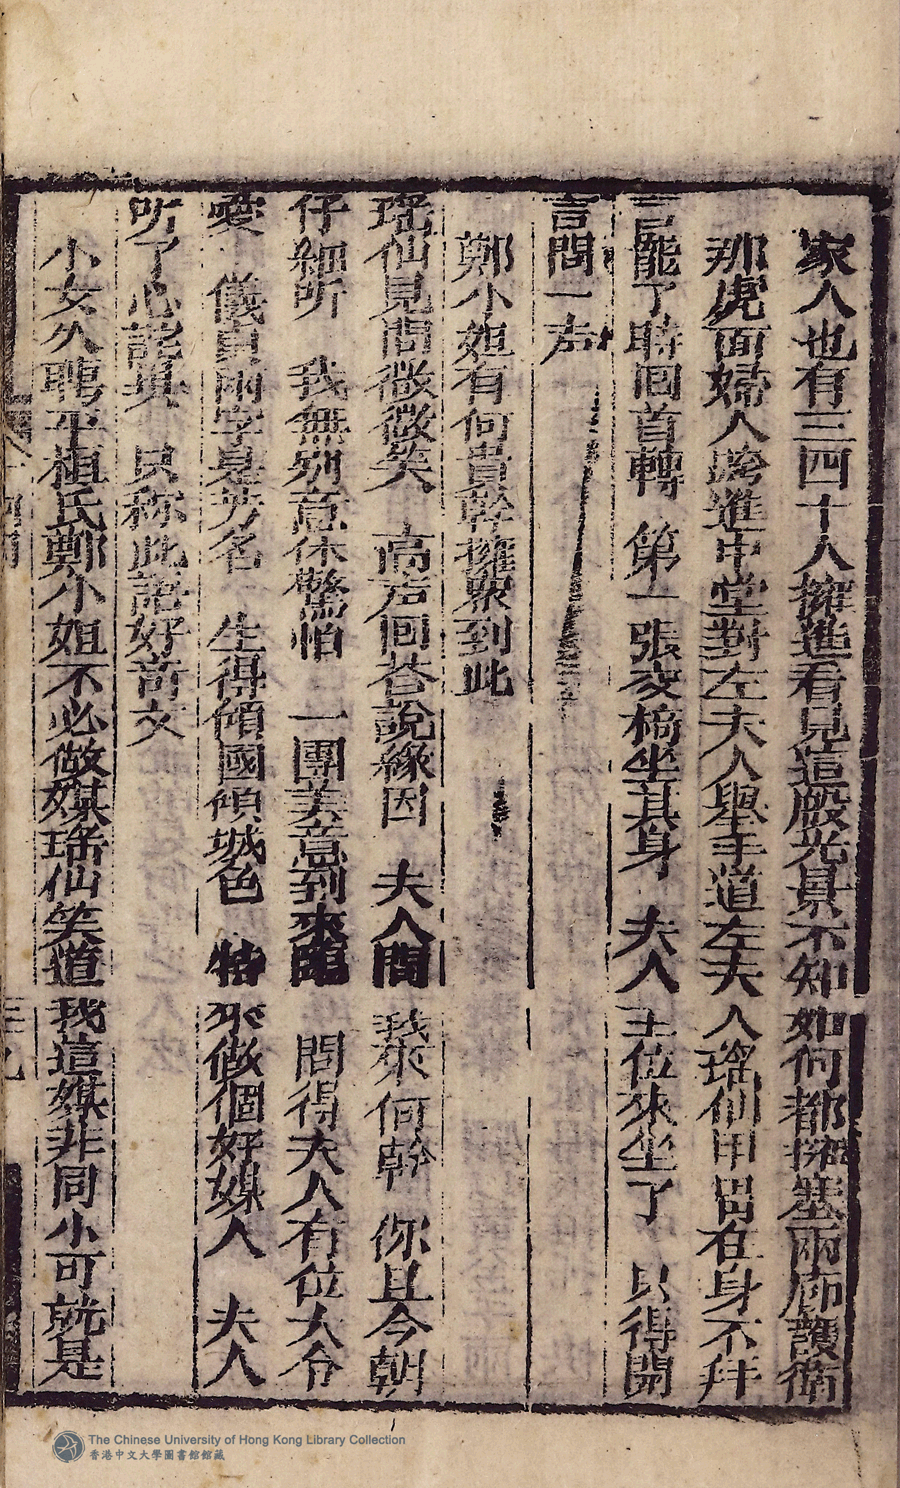 家人也有三四十人擁進看見這殿光景不知如何都擁塞兩廊護衛
那虎面婦人跨進中堂對左夫人舉手道左夫人瑤仙甲冑在身不拜
言罷了時回首轉 第一張交椅坐其身 夫人主位來坐了 只得開
言問一声
鄭小姐有何貴幹擁眾到此
瑤仙見問微微笑 高声回答說緣因 夫人問我來何幹 你且今朝
仔細听 我無別意休驚怕 一團美意到來臨 問得夫人有位大令
愛 儀貞兩字是芳名 生得傾國傾城色 特來做個好媒人 夫人
听了心 只称此語好奇文
小女久聘平植氏鄭小姐不必做媒瑤仙笑道我這媒非同小可就是
The Chinese University of Hong Kong Library Collection
香港中文大學圖書館館藏